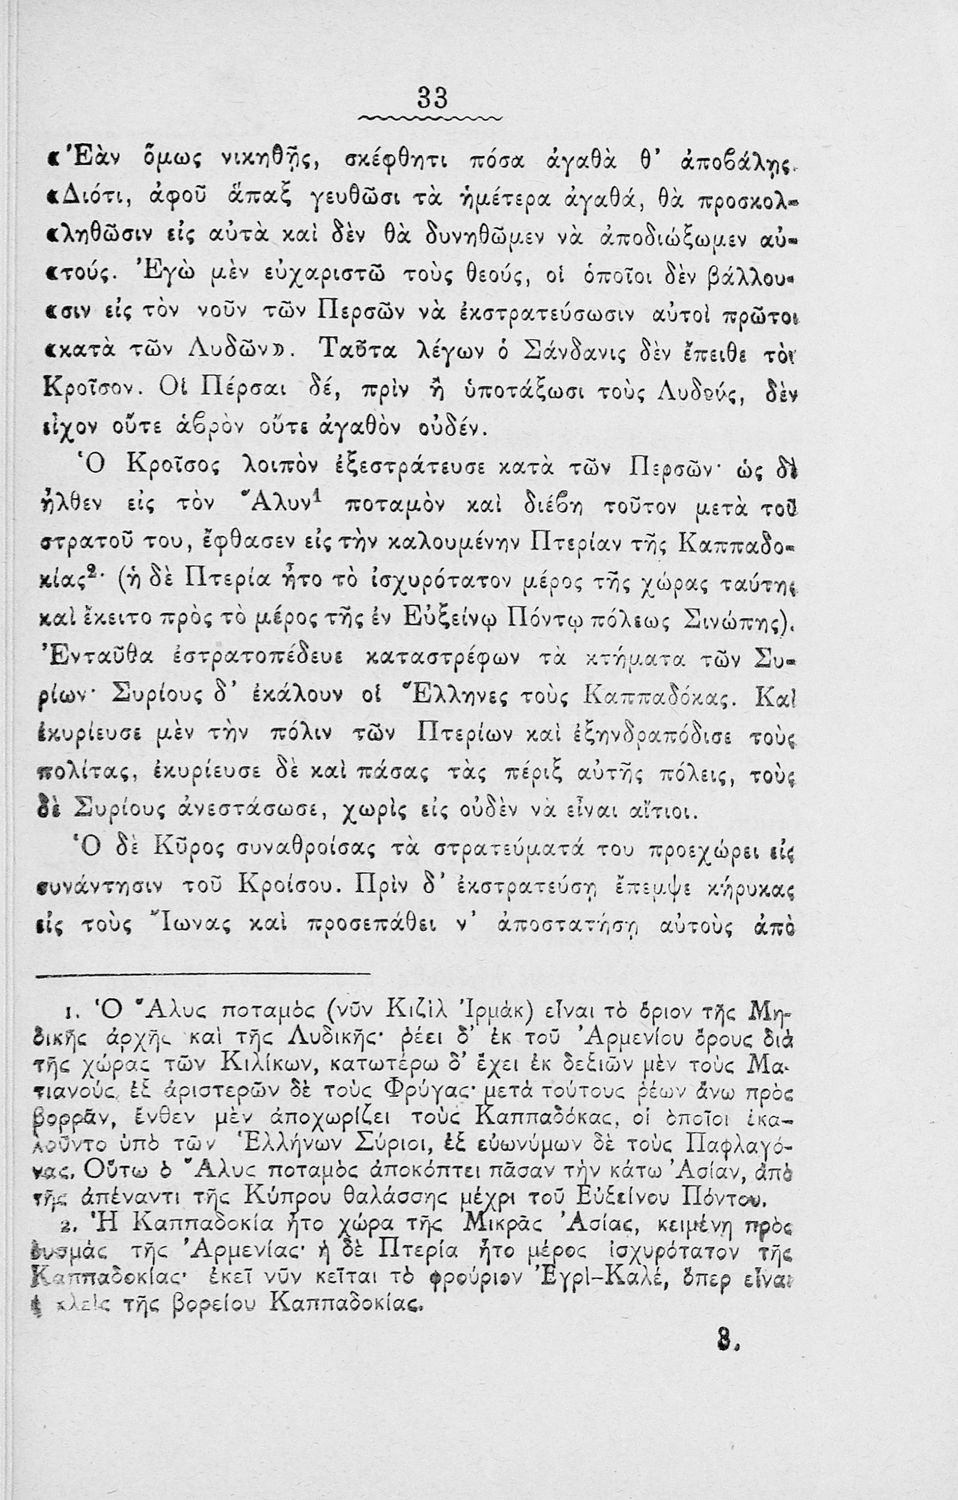 33
«Ἐὰν ὅμως νικηθῇς, σκέφθητι πόσα ἀγαθὰ θ' ἀποβάλῃς.
«Διότι, ἀφοῦ ἅπαξ γευθῶσι τὰ ἡμέτερα ἀγαθά, θὰ προσκολ-
«ληθῶσιν εἰς αὐτὰ καὶ δὲν θὰ δυνηθῶμεν νὰ ἀποδιώξωμεν αὐ-
«τούς. Ἐγὼ μὲν εὐχαριστῶ τοὺς θεούς, οἱ ὁποῖοι δὲν βάλλου-
«σιν εἰς τὸν νοῦν τῶν Περσῶν νὰ ἐκστρατεύσωσιν αὐτοὶ πρῶτοι
«κατὰ τῶν Λυδῶν». Ταῦτα λέγων ὁ Σάνδανις δὲν ἔπειθε τὸν
Κροῖσον. Οἱ Πέρσαι δέ, πρὶν ἢ ὑποτάξωσι τοὺς Λυδούς, δὲν
εἶχον οὔτε ἁβρὸν οὔτε ἀγαθὸν οὐδέν.
Ὁ Κροῖσος λοιπὸν ἐξεστράτευσε κατὰ τῶν Περσῶν· ὡς δὲ
ἦλθεν εἰς τὸν Ἅλυν¹ ποταμὸν καὶ διέβη τοῦτον μετὰ τοῦ
στρατοῦ του, ἔφθασεν εἰς τὴν καλουμένην Πτερίαν τῆς Καππαδο-
κίας²· (ἡ δὲ Πτερία ἦτο τὸ ἰσχυρότατον μέρος τῆς χώρας ταύτης
καὶ ἔκειτο πρὸς τὸ μέρος τῆς ἐν Εὐξείνῳ Πόντῳ πόλεως Σινώπης).
Ἐνταῦθα ἐστρατοπέδευε καταστρέφων τὰ κτήματα τῶν Συ-
ρίων· Συρίους δ' ἐκάλουν οἱ Ἕλληνες τοὺς Καππαδόκας. Καὶ
ἐκυρίευσε μὲν τὴν πόλιν τῶν Πτερίων καὶ ἐξηνδραπόδισε τοὺς
πολίτας, ἐκυρίευσε δὲ καὶ πάσας τὰς πέριξ αὐτῆς πόλεις, τοὺς
δὲ Συρίους ἀνεστάσωσε, χωρὶς εἰς οὐδὲν νὰ εἶναι αἴτιοι.
Ὁ δὲ Κῦρος συναθροίσας τὰ στρατεύματά του προεχώρει εἰς
συνάντησιν τοῦ Κροίσου. Πρὶν δ' ἐκστρατεύσῃ ἔπεμψε κήρυκας
εἰς τοὺς Ἴωνας καὶ προσεπάθει ν' ἀποστατήσῃ αὐτοὺς ἀπὸ
1. Ὁ Ἅλυς ποταμὸς (νῦν Κιζὶλ Ἰρμάκ) εἶναι τὸ ὅριον τῆς Μη-
δικῆς ἀρχῆς καὶ τῆς Λυδικῆς· ῥέει δ' ἐκ τοῦ Ἀρμενίου ὄρους διὰ
τῆς χώρας τῶν Κιλίκων, κατωτέρω δ' ἔχει ἐκ δεξιῶν μὲν τοὺς Μα-
τιανούς, ἐξ ἀριστερῶν δὲ τοὺς Φρύγας· μετὰ τούτους ῥέων ἄνω πρὸς
βορρᾶν, ἔνθεν μὲν ἀποχωρίζει τοὺς Καππαδόκας, οἱ ὁποῖοι ἐκα-
λοῦντο ὑπὸ τῶν Ἑλλήνων Σύριοι, ἐξ εὐωνύμων δὲ τοὺς Παφλαγό-
νας. Οὕτω ὁ Ἅλυς ποταμὸς ἀποκόπτει πᾶσαν τὴν κάτω Ἀσίαν, ἀπὸ
τῆς ἀπέναντι τῆς Κύπρου θαλάσσης μέχρι τοῦ Εὐξείνου Πόντου.
2. Ἡ Καππαδοκία ἦτο χώρα τῆς Μικρᾶς Ἀσίας, κειμένη πρὸς
δυσμὰς τῆς Ἀρμενίας· ἡ δὲ Πτερία ἦτο μέρος ἰσχυρότατον τῆς
Καππαδοκίας· ἐκεῖ νῦν κεῖται τὸ φρούριον Ἐγρὶ-Καλέ, ὅπερ εἶναι
ἡ κλεὶς τῆς βορείου Καππαδοκίας.
3.